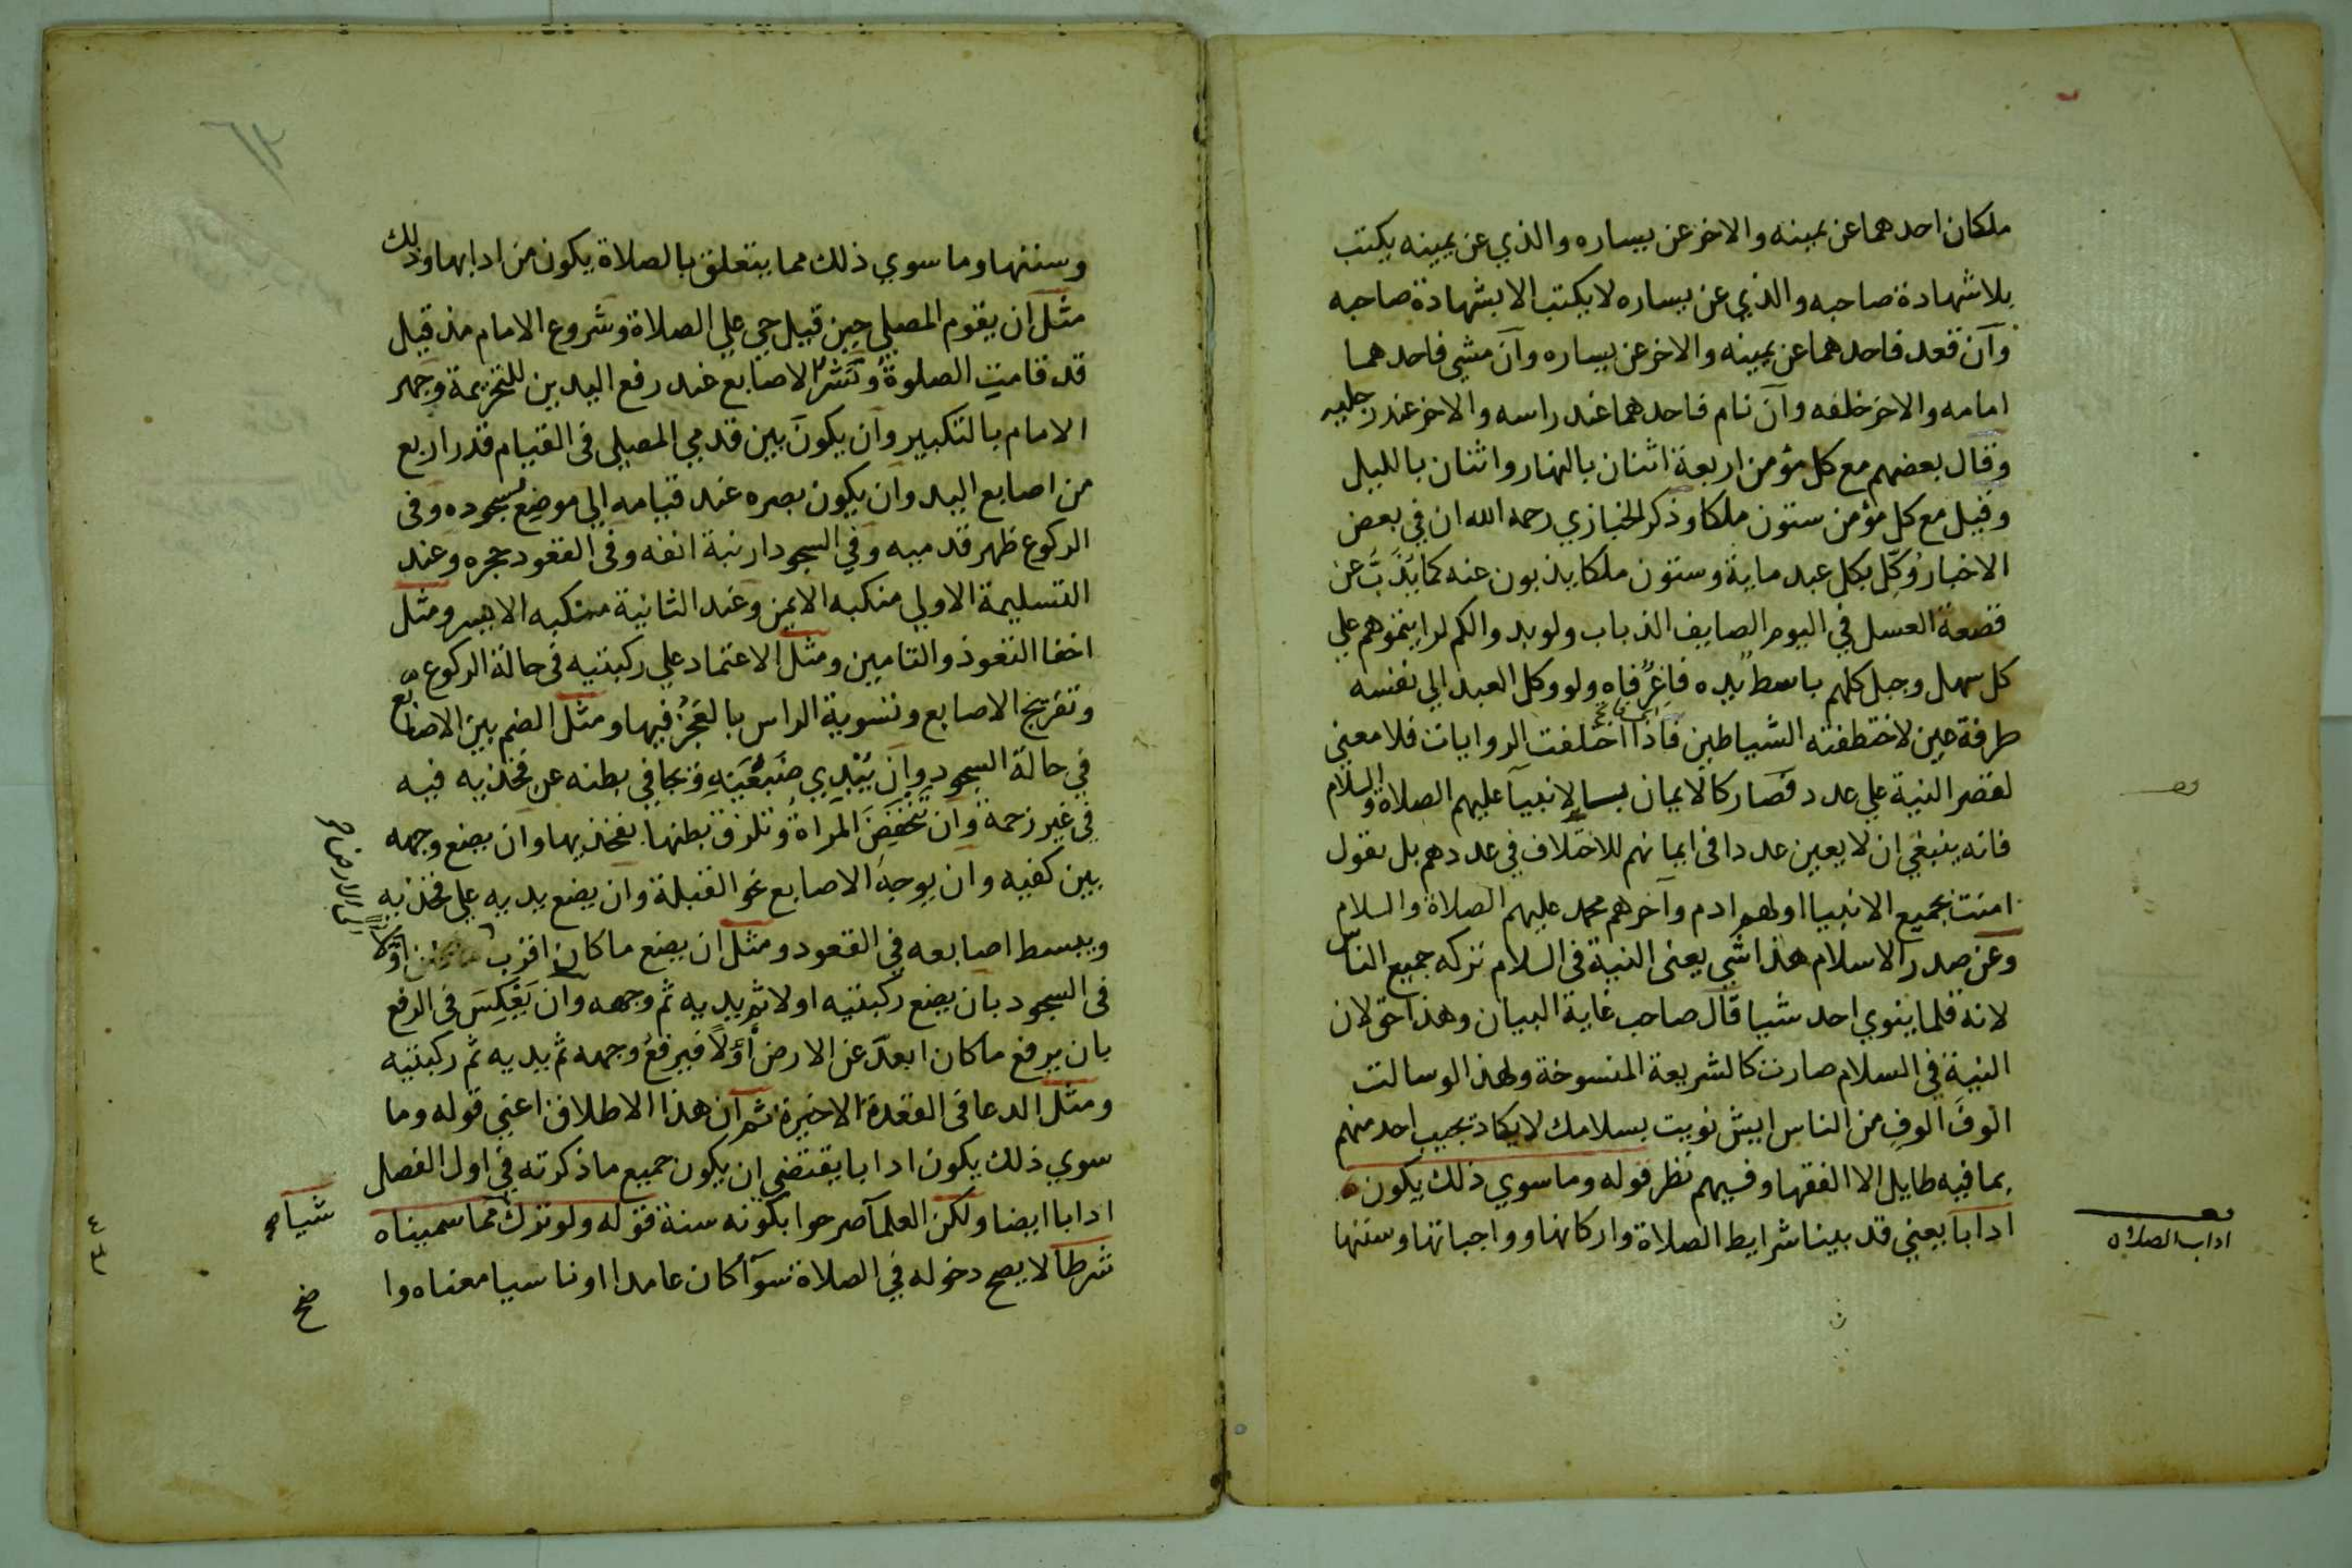 ملكان احدهما عن يمينه والاخر عن يساره والذي عن يمينه يكتب
بلا شهادة صاحبه والذي عن يساره لا يكتب الا بشهادة صاحبه
وان قعد فاحدهما عن يمينه والاخر عن يساره وان مشي فاحدهما
امامه والاخر خلفه وان نام فاحدهما عند راسه والاخر عند رجليه
وقال بعضهم مع كل مؤمن اربعة اثنان بالنهار واثنان بالليل
وقيل مع كل مؤمن ستون ملكا وذكر الخبازي رحمه الله ان في بعض
الاخبار وُكّل بكل عبد ماية وستون ملكا يذبون عنه كما يُذَبُّ عن
قصعة العسل في اليوم الصايف الذباب ولو بدوا لكم لرايتموهم علي
كل سهل وجبل كلهم باسط يده فاغِرٌ فاه ولو وكل العبد الي نفسه
طرفة عين لاختطفته الشياطين فاذا اختلفت الروايات فلا معني
لقصر النية علي عدد فصار كالايمان بسا لانبيآ عليهم الصلاة والسلام
فانه ينبغي ان لا يعين عددا في ايمانهم للاختلاف في عددهم بل يقول
امنت بجميع الانبيا اولهم ادم وآخرهم محمد عليهم الصلاة والسلام
وعن صدر الاسلام هذا شي يعني النية في السلام تركه جميع الناس
لانه قلما ينوي احد شيا قال صاحب غاية البيان وهذا حق لان
النية في السلام صارت كالشريعة المنسوخة ولهذا لو سالت
الوفَ الوفٍ من الناس ايش نويت بسلامك لا يكاد يجيب احد منهم
بما فيه طايل الا الفقها وفيهم نظر قوله وما سوي ذلك يكون
ادابا يعني قد بينا شرايط الصلاة واركانها وواجباتها وسننها
اداب الصلاة
وسننها وما سوي ذلك مما يتعلق بالصلاة يكون من ادابها وذلك
مثل ان يقوم المصلي حين قيل حي علي الصلاة وشروع الامام مذ قيل
قد قامت الصلوة ونشر الاصابع عند رفع اليدين للتحريمة وجهر
الامام بالتكبير وان يكون بين قدمي المصلي في القيام قدر اربع
من اصابع اليد وان يكون بصره عند قيامه الي موضع سجوده وفي
الركوع ظهر قدميه وفي السجود ارنبة انفه وفي القعود حجره وعند
التسليمة الاولي منكبه الايمن وعند الثانية منكبه الايسر ومثل
اخفا التعوذ والتامين ومثل الاعتماد علي ركبتيه في حالة الركوع
وتفريج الاصابع وتسوية الراس بالعَجُز فيها ومثل الضم بين الاصابع
في حالة السجود وان يُبْدِي ضَبْعَيْهِ ويجافي بطنه عن فخذيه فيه
في غير زحمة وان تنخفض المراة وتلزق بطنها بفخذيها وان يضع وجهه
بين كفيه وان يوجه الاصابع نحو القبلة وان يضع يديه علي فخذيه
ويبسط اصابعه في القعود ومثل ان يضع ما كان اقرب اولا
الي الارض
في السجود بان يضع ركبتيه اولا ثم يديه ثم وجهه وان يَعْكِسَ في الرفع
بان يرفع ما كان ابعد عن الارض أوّلًا فيرفع وجهه ثم يديه ثم ركبتيه
ومثل الدعا في القعدة الاخيرة ثم ان هذا الاطلاق اعني قوله وما
سوي ذلك يكون ادابا يقتضي ان يكون جميع ما ذكرته في اول الفصل
ادابا ايضا ولكن العلمآ صرحوا بكونه سنة قوله ولو ترك مما سميناه
شيا
شرطا لا يصح دخوله في الصلاة سوآ كان عامدا او ناسيا معناه وا
ضح